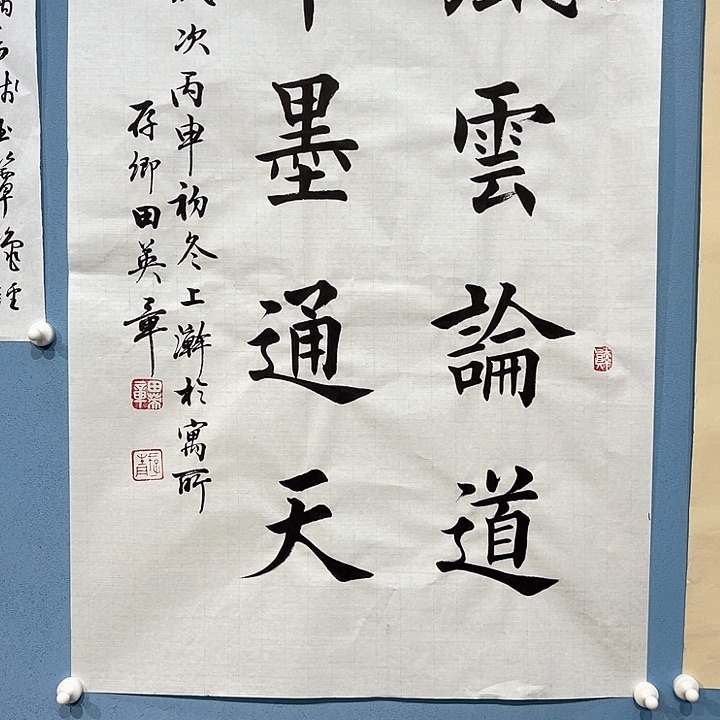 風雲論道
墨通天
歲次丙申初冬上澣於寓所
存卿田英章